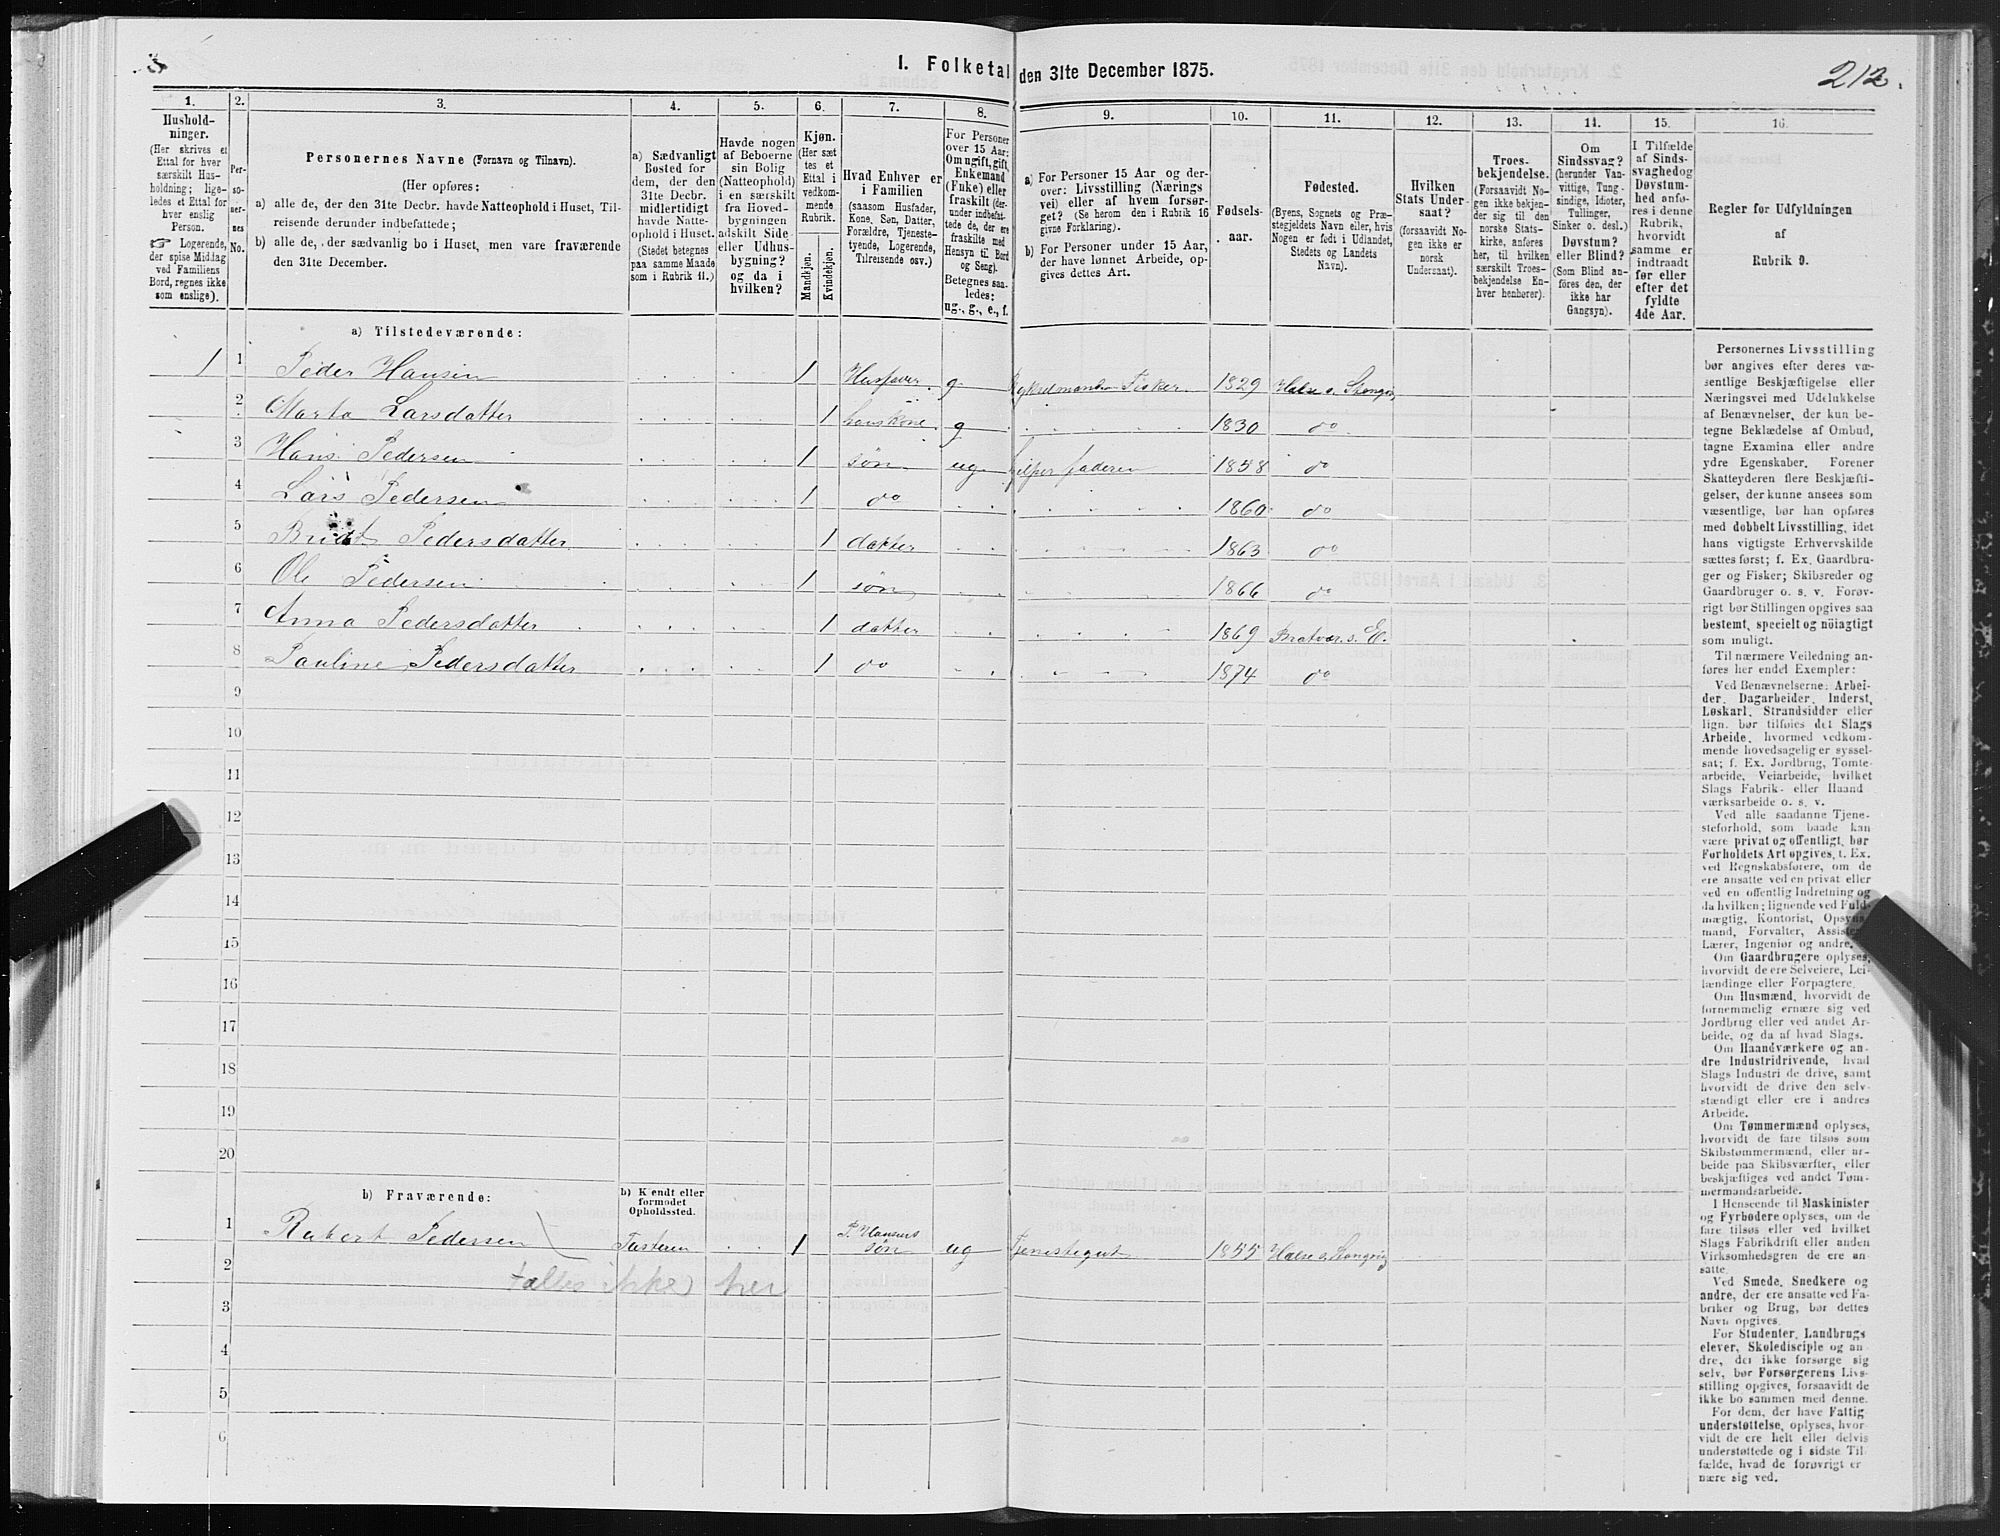 I. Folketal den 31te December 1875.
212.
1. 2. 3. 4. 5. 6. 7. 8. 9. 10. 11. 12. 13. 14. 15. 16.
Hushold-
ninger.
(Her skrives et
Ettal for hver
særskilt Hus-
holdning; lige-
ledes et Ettal for
hver enslig
Person.
☞ Logerende,
der spise Middag
ved Familiens
Bord, regnes ikke
som enslige).
Per-
so-
ner-
nes
No.
Personernes Navne (Fornavn og Tilnavn).
(Her opføres:
a) alle de, der den 31te Decbr. havde Natteophold i Huset, Til-
reisende derunder indbefattede;
b) alle de, der sædvanlig bo i Huset, men vare fraværende
den 31te December.
a) Sædvanligt
Bosted for
dem, der den
31te Decbr.
midlertidigt
havde Natte-
ophold i Huset.
(Stedet betegnes
paa samme Maade
som i Rubrik 11.)
Havde nogen
af Beboerne
sin Bolig
(Natteophold)
i en særskilt
fra Hoved-
bygningen
adskilt Side-
eller Udhus-
bygning?
og da i
hvilken?
Kjøn.
(Her sæt
tes et
Ettal i
vedkom-
mende
Rubrik.
Mandkjøn.
Kvindekjøn.
Hvad Enhver er
i Familien
(saasom Husfader,
Kone, Søn, Datter,
Forældre, Tjeneste-
tyende, Logerende,
Tilreisende osv.)
For Personer
over 15 Aar:
Om ugift, gift,
Enkemand
(Enke) eller
fraskilt (der-
under indbefat-
tede de, der ere
fraskilte med
Hensyn til Bord
og Seng).
Betegnes saa-
ledes:
ug., g., e., f.
a) For Personer 15 Aar og der-
over: Livsstilling (Nærings
vei) eller af hvem forsør-
get? (Se herom den i Rubrik 16
givne Forklaring).
b) For Personer under 15 Aar,
der have lønnet Arbeide, op-
gives dettes Art.
Fødsels-
aar.
Fødested.
(Byens, Sognets og Præ-
stegjeldets Navn eller, hvis
Nogen er født i Udlandet,
Stedets og Landets
Navn).
Hvilken
Stats Under-
saat?
(forsaavidt No-
gen ikke er
norsk
Undersaat).
Troes-
bekjendelse.
(Forsaavidt No-
gen ikke bekjen-
der sig til den
norske Stats-
kirke, anføres
her, til hvilken
særskilt Troes-
bekjendelse En-
hver henhører).
Om
Sindssvag?
(herunder Van-
vittige, Tung-
sindige, Idioter,
Tullinger,
Sinker o. desl.)
Døvstum?
eller Blind?
(Som Blind an-
føres den, der
ikke har
Gangsyn).
I Tilfælde
af Sinds-
svaghed og
Døvstum-
hed anfø-
res i denne
Rubrik,
hvorvidt
samme er
indtraadt
før eller
efter det
fyldte
4de Aar.
Regler for Udfyldningen
af
Rubrik 9.
a) Tilstedeværende:
1 1 Peder Hansen 1 Husfader g Fisker 1829
2 Marta Larsdatter 1 hans Kone g 1830 do
3 Hans Pedersen 1 søn ug hjelper faderen 1858 do
4 Lars Pedersen 1 do 1860 do
5 Pedersdatter 1 datter 1863 do
6 Ole Pedersen 1 søn 1866 do
7 Anna Pedersdatter 1 datter 1869 Bratvær s. E.
8 Pauline Pedersdatter 1 do 1874 do
9
10
11
12
13
14
15
16
17
18
19
20
b) Fraværende:
b) Kjendt eller
formodet
Opholdssted.
1 Pedersen Tusteren 1 P. Hansens søn ug Tjenestegut 1855
2 tælles ikke her
3
4
5
6
Personernes Livsstilling
bør angives efter deres væ-
sentlige Beskjæftigelse eller
Næringsvei med Udelukkelse
af Benævnelser, der kun be-
tegne Beklædelse af Ombud,
tagne Examina eller andre
ydre Egenskaber. Forener
Skatteyderen flere Beskjæfti-
gelser, der kunne ansees som
væsentlige, bør han opføres
med dobbelt Livsstilling, idet
hans vigtigste Erhvervskilde
sættes først; f. Ex. Gaardbru-
ger og Fisker; Skibsreder og
Gaardbruger o. s. v. Forøv-
rigt bør Stillingen opgives saa
bestemt, specielt og nöiagtigt
som muligt.
Til nærmere Veiledning an-
føres her endel Exempler:
Ved Benævnelserne: Arbei-
der, Dagarbeider, Inderst,
Løskarl, Strandsidder eller
lign. bør tilføies det Slags
Arbeide, hvormed vedkom-
mende hovedsagelig er syssel-
sat; f. Ex. Jordbrug, Tomte-
arbeide, Veiarbeide, hvilket
Slags Fabrik- eller Haand
værksarbeide o. s. v.
Ved alle saadanne Tjene-
steforhold, som baade kan
være privat og offentligt, bør
Forholdets Art opgives, f. Ex.
ved Regnskabsførere, om de
ere ansatte ved en privat eller
ved en offentlig Indretning og
da hvilken; lignende ved Fuld-
mægtig, Kontorist, Opsyns-
mand, Forvalter,
Lærer, Ingeniør og andre.
Om Gaardbrugere oplyses,
hvorvidt de ere Selveiere, Lei-
lændinge eller Forpagtere.
Om Husmænd, hvorvidt de
fornemmelig ernære sig ved
Jordbrug eller ved andet Ar-
beide, og da af hvad Slags.
Om Haandværkere og an-
dre Industridrivende, hvad
Slags Industri de drive, samt
hvorvidt de drive den selv-
stændigt eller ere i andres
Arbeide.
Om Tømmermænd oplyses,
hvorvidt de fare tilsøs som
Skibstømmermænd, eller ar-
beide paa Skibsværfter, eller
beskjæftiges ved andet Tøm-
mermandsarbeide.
I Henseende til Maskinister
og Fyrbødere oplyses, om de
fare tilsøs eller ved hvilket
Slags Fabrikdrift eller anden
Virksomhedsgren de ere an-
satte.
Ved Smede, Snedkere og
andre, der ere ansatte ved Fa-
briker og Brug, bør dettes
Navn opgives.
For Studenter, Landbrugs
elever, Skoledisciple og an-
dre, der ikke forsørge sig
selv, bør Forsørgerens Livs-
stilling opgives, forsaavidt de
ikke bo sammen med denne.
For dem, der have Fattig
understøttelse, oplyses, hvor-
vidt de ere helt eller delvis
understøttede og i sidste Til-
fælde, hvad de forøvrigt er
nære sig ved.